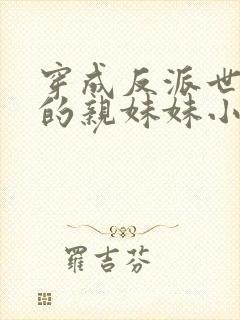 穿成反派世
的親妹妹小
羅吉芬